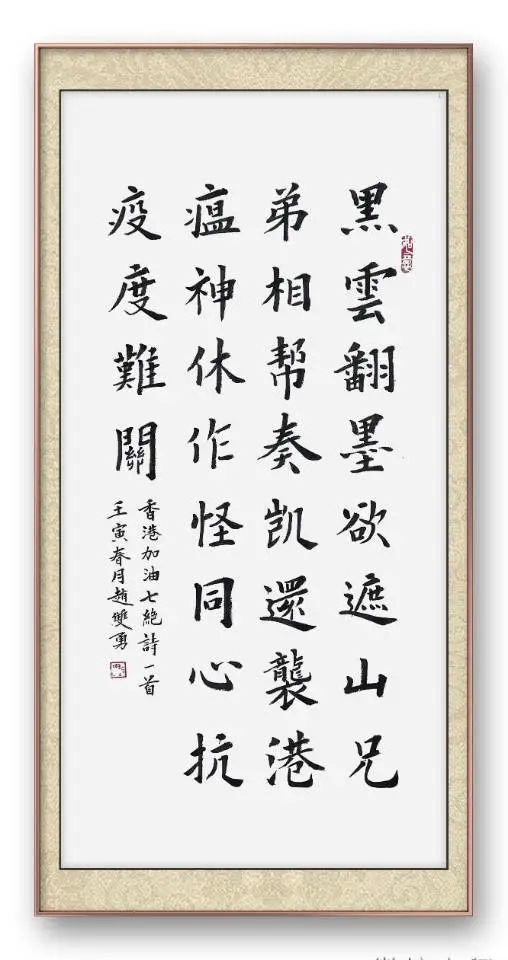 黑雲翻墨欲遮山兄
弟相幫奏凱還襲港
瘟神休作怪同心抗
疫度難關
香港加油七絕詩一首
壬寅春月趙雙勇